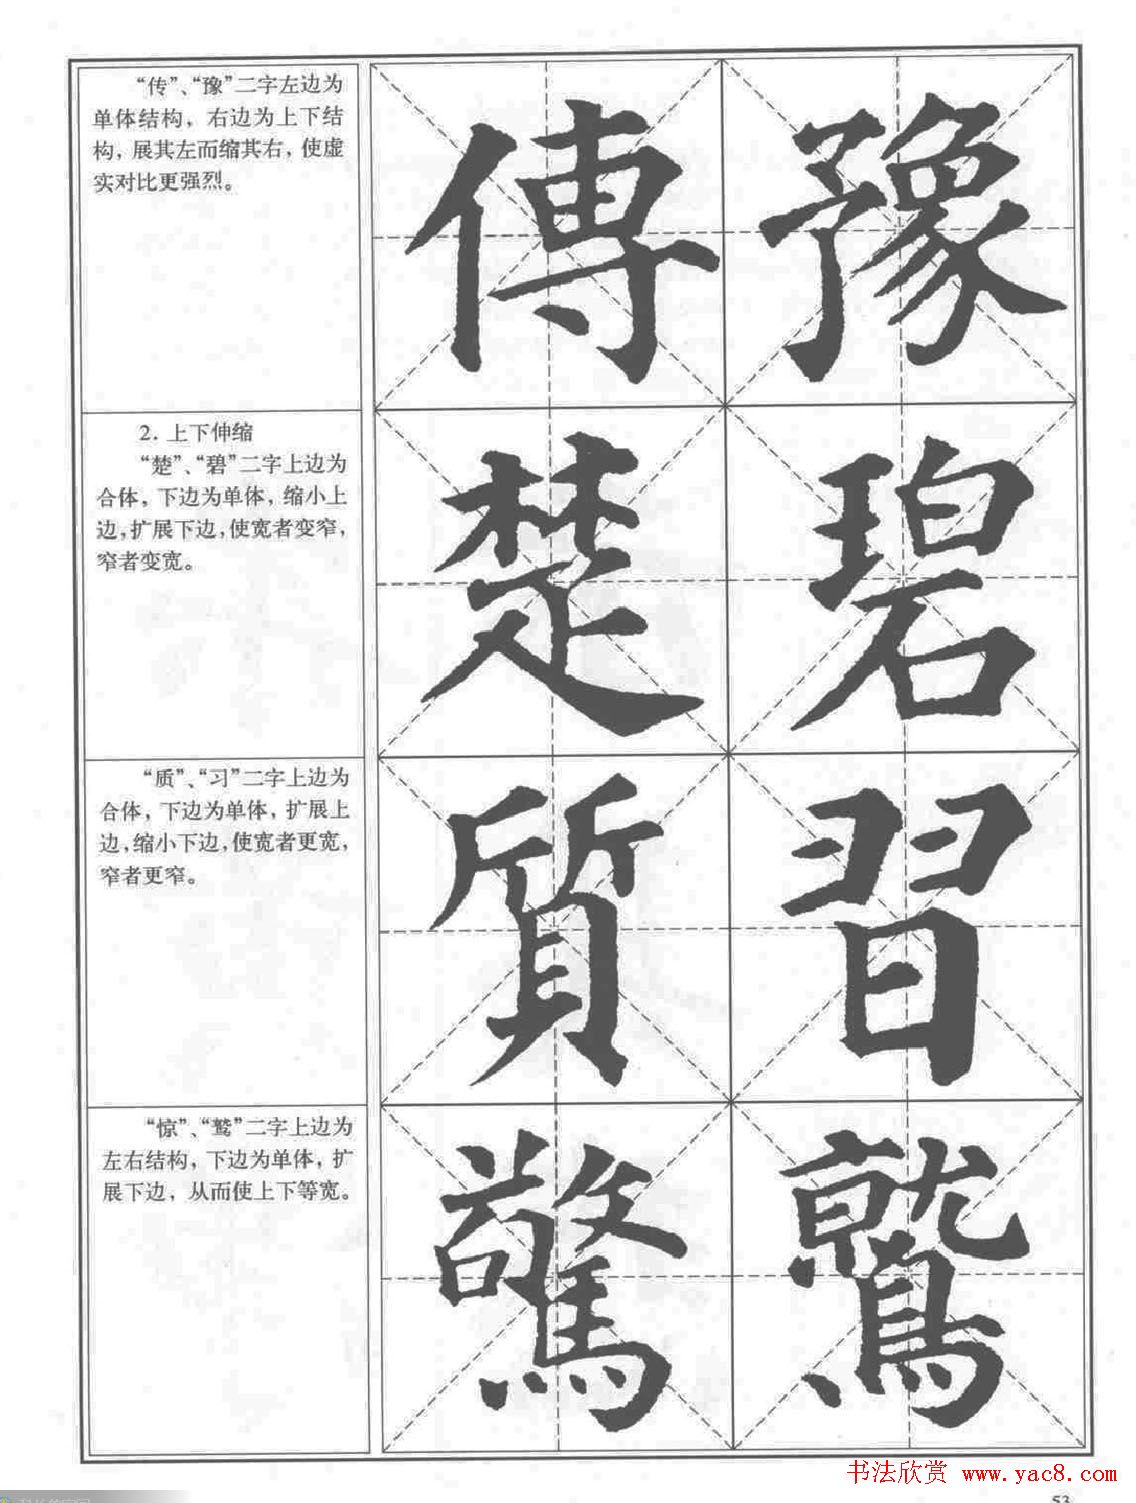 “传”、“豫”二字左边为
单体结构，右边为上下结
构，展其左而缩其右，使虚
实对比更强烈。
傳 豫
2. 上下伸缩
“楚”、“碧”二字上边为
合体，下边为单体，缩小上
边，扩展下边，使宽者变窄，
窄者变宽。
楚 碧
“质”、“习”二字上边为
合体，下边为单体，扩展上
边，缩小下边，使宽者更宽，
窄者更窄。
質 習
“惊”、“鹫”二字上边为
左右结构，下边为单体，扩
展下边，从而使上下等宽。
驚 鷲
书法欣赏 www.yac8.com
53